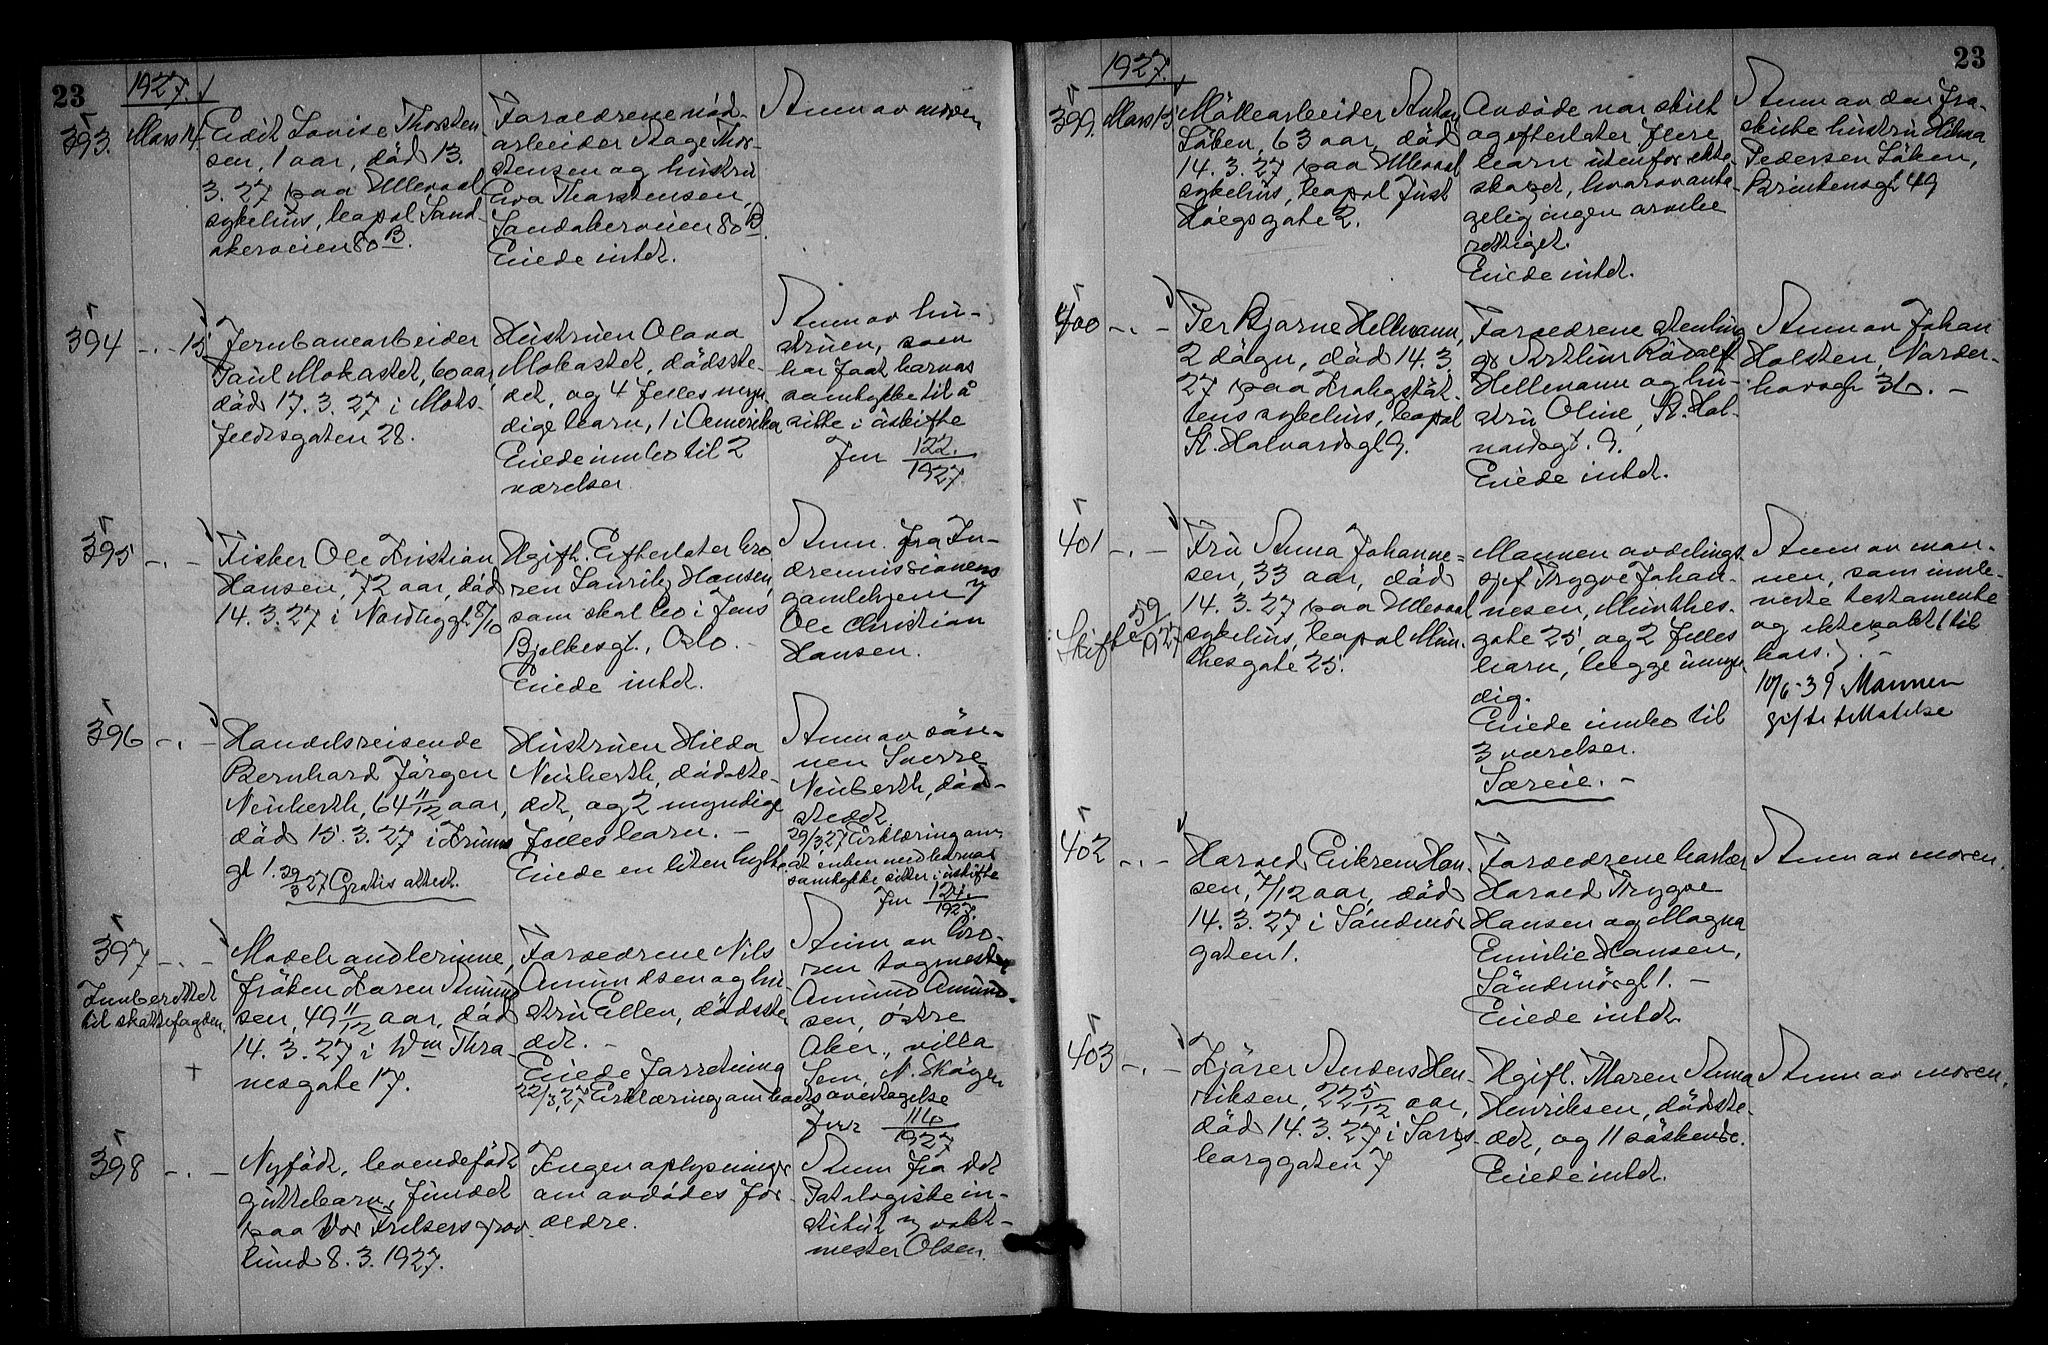 23
1927.
393. Mars 14.
Edit Lovise Thorsten-
sen, 1 aar, död 13.
3. 27 paa Ullevaal
sykehus, bopæl Sand-
akerveien 80 B.
Foreldrene nöd-
arbeider Aage Thor-
stensen og hustru
Eva Thorstensen,
Sandakerveien 80 B.
Eiede intet.
Anm av moren
394 -.- 15
Jernbanearbeider
Paul Mokastet, 60 aar,
död 17. 3. 27 i Mots-
feldtsgaten 28.
Hustruen Olava
Mokastet, dödsste-
det, og 4 felles myn-
dige barn, 1 i Amerika
Eiede innbo til 2
værelser.
Anm av hu-
struen, som
har faat barnas
samtykke til å
sitte i uskifte
Jnr 122/1927.
395 -.-
Fisker Ole Kristian
Hansen, 72 aar, död
14. 3. 27 i Nordbygt 8/10
Ugift. Efterlater bro
ren Lauritz Hansen,
som skal bo i Jens
Bjelkesgt., Oslo.
Eiede intet.
Anm. fra In-
dremissionens
gamlehjem v
Ole Christian
Hansen.
396 -.-
Handelsreisende
Bernhard Jörgen
Neuberth, 64 11/12 aar,
död 15. 3. 27 i Krums
gt 1. 29/3 27 Gratis attest.
Hustruen Hilda
Neuberth, dödsste-
det, og 2 myndige
felles barn. -
Eiede en liten hytte
Anm av sön-
nen Sverre
Neuberth, död-
stedet.
29/3 27 Erklæring om
at enken med barnas
samtykke sitter i uskifte
Jnr 121/1927.
397 -.-
Innberettet
til skattefogden.
+
Modehandlerinne,
fröken Karen Amund
sen, 49 11/12 aar, död
14. 3. 27 i Wm Thra-
nesgate 17.
Foreldrene Nils
Amundsen og hu-
stru Ellen, dödsste-
det. -
Eiede forretning
22/3. 27 Erklæring om boets overtagelse
Jnr 116/1927
Anm av bro-
ren togmester
Amund Amund-
sen, östre
Aker, villa
Sem, N. Skøyen
398 -.-
Nyfödt, levendefödt
guttebarn, funnet
paa Vor Frelsers grav
lund 8. 3. 1927.
Ingen oplysninger
om avdödes for-
eldre.
Anm fra Det
Patologiske in-
stitut v vakt-
mester Olsen.
23
1927.
399. Mars 15
Möllearbeider Anton
Löken, 63 aar, död
14. 3. 27 paa Ullevaal
sykehus, bopæl Just
Hoegsgate 2.
Avdöde var skilt
og efterlater flere
barn utenfor ekte-
skapet, hvorav ante-
gelig ingen arvebe
rettiget.
Eiede intet.
Anm av den fra-
skilte hustru Hilma
Pedersen Löken,
Brinkensgt 49
400 -.-
Per Bjarne Hellmann,
2 dögn, död 14. 3.
27 paa Krohgstöt-
tens sykehus, bopæl
St. Halvardsgt 9.
Foreldrene stenhug
ger Arthur Rudolf
Hellmann og hu-
stru Oline, St. Hal-
vardsgt. 9.
Eiede intet.
Anm av Johan
Holsten, Norder-
hovsgt 36. -
401 -.-
Skifte 59/1927
Fru Anna Johanne-
sen, 33 aar, död
14. 3. 27 paa Ullevaal
sykehus, bopæl Mun-
thesgate 25.
Mannen avdelings-
sjef Trygve Johan-
nesen, Munthes-
gate 25, og 2 felles
barn, begge umyn-
dig.
Eiede innbo til
3 værelser.
Særeie. -
Anm av man-
nen, som innle-
verte testamente
og ektepakt til
bars.). -
10/6-39 Mannen
gifte tillatelse
402 -.-
Harald Eikrem Han-
sen, 7/12 aar, död
14. 3. 27 i Söndmörs
gaten 1.
Foreldrene bakker
Harald Trygve
Hansen og Magna
Emilie Hansen,
Söndmörsgt 1. -
Eiede intet
Anm av moren.
403 -.-
Kjörer Anders Hen-
riksen, 22 5/12 aar,
död 14. 3. 27 i Sars-
borggaten 7
Ugift. Moren Anna
Henriksen, dödsste-
det, og 11 söskende.
Eiede intet.
Anm av moren.